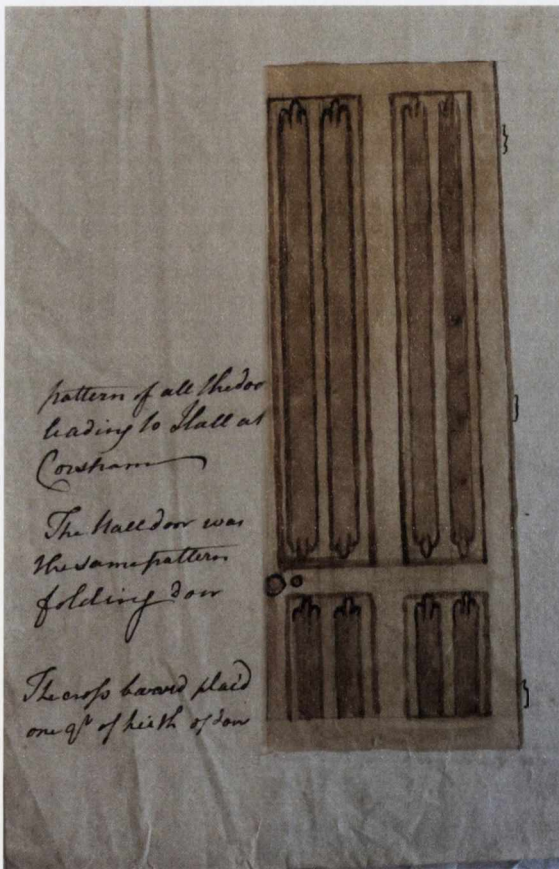 pattern of all the doo
leading to Hall at
Corsham
The Hall door was
the same pattern
folding door
The cross baard plac'd
one qr of hieth of dour